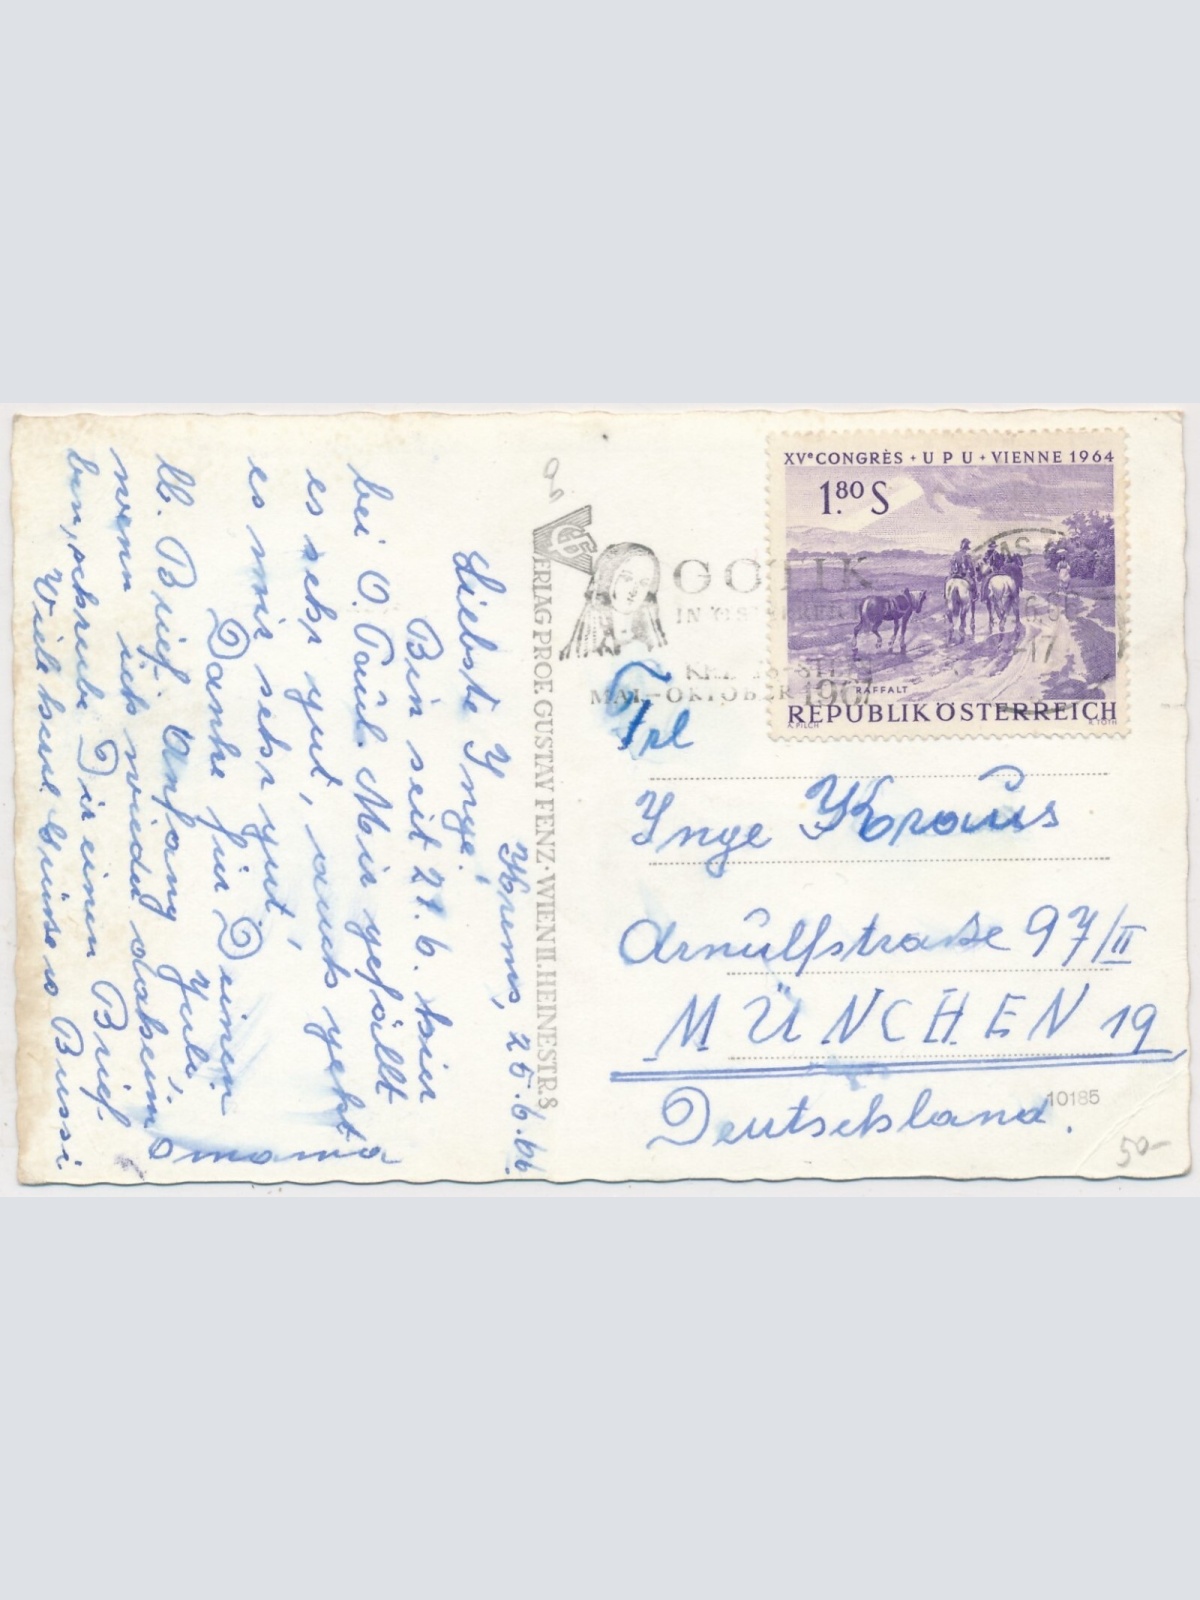 Krems, 25.6.66.
Liebste Inge!
Bin seit 21.6. hier
bei O. Paul. Mir gefällt
es sehr gut, auch geht
es mir sehr gut,
Danke für Deinen
lb. Brief. Anfang Juli,
wenn ich wieder daheim
bin, schreibe Dir einen Brief.
Viele Grüsse u Bussi
Omama
VERLAG PROF. GUSTAV FENZ · WIEN II. HEINESTR. 8
XVe CONGRÈS · UPU · VIENNE 1964
1.80 S
RAFFALT
REPUBLIK ÖSTERREICH
A. PILCH
R. TOTH
GOTIK
IN
MAI–OKTOBER 1967
-17
Frl
Inge Kraus
Arnulfstraße 97/II
MÜNCHEN 19
Deutschland.
10185
50-